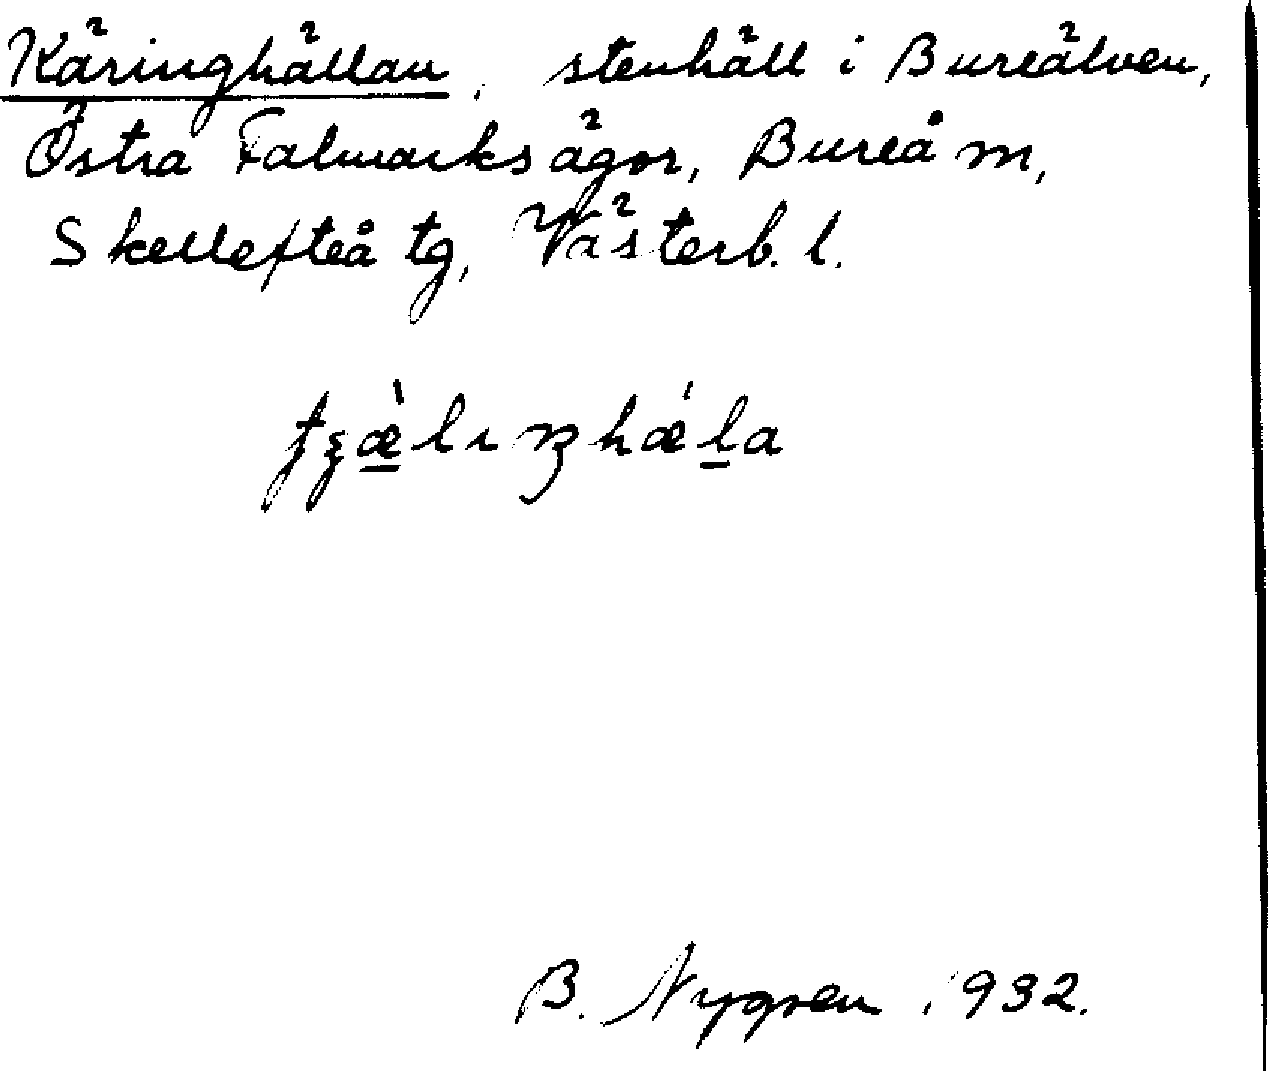 Käringhällan, stenhäll i Bureälven,
Östra Falmarks ägor, Bureå m,
Skellefteå tg, Västerb. l.
B. Nygren 1932.